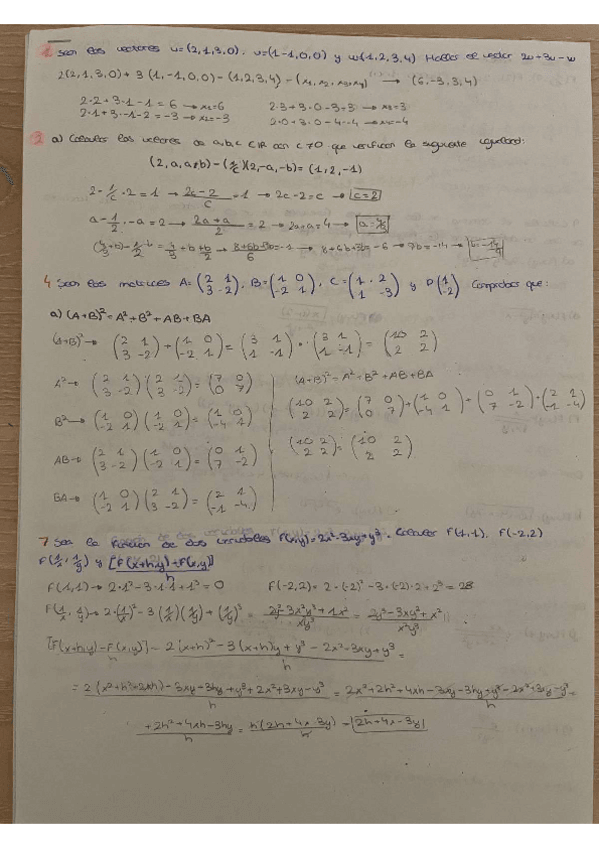 1 Sean los vectores u=(2,1,3,0). v=(1-1,0,0) y w(1,2,3,4) Hallar el vector 2u+3v-w
2(2,1,3,0)+3(1,-1,0,0)-(1,2,3,4)-(x1,x2,x3,x4) → (6,-3,3,4)
2·2+3·1-1=6 → x1=6 2·3+3·0-3=3 → x3=3
2·1+3·-1-2=-3 → x2=-3 2·0+3·0-4=-4 → x4=-4
2 a) Calcular los vectores de a,b,c ∈ℝ con c≠0 que verifican la siguiente igualdad:
(2,a,a+b)-(1/c)(2,-a,-b)=(1,2,-1)
2-1/c·2=1 → 2c-2/c=1 → 2c-2=c → c=2
a-1/2·-a=2 → 2a+a/2=2 → 2a+a=4 →
4 Sean las matrices A=(2 1 3 -2), B=(1 0 -2 1), C=(1 · 2 1 -3) y D(1 -2) Comprobar que:
a) (A+B)²=A²+B²+AB+BA
(A+B)² → (2 1 3 -2)+(1 0 -2 1)=(3 1 1 -1)·(3 1 1 -1)=(10 2 2 2)
A² → (2 1 3 -2)(2 1 3 -2)=(7 0 0 7)
B² → (1 0 -2 1)(1 0 -2 1)=(1 0 -4 1)
AB → (2 1 3 -2)(1 0 -2 1)=(0 1 7 -2)
BA → (1 0 -2 1)(2 1 3 -2)=(2 1 -1 -4)
(A+B)²=A²+B²+AB+BA
(10 2 2 2)=(7 0 0 7)+(1 0 -4 1)+(0 1 7 -2)+(2 1 -1 -4)
(10 2 2 2)=(10 2 2 2)
7 Sea la función de dos variables F(x,y)=2x²-3xy+y³. Calcular F(1,1). F(-2,2)
F(1/x, 1/y) y [F(x+h,y)+F(x,y)]/h
F(1,1) → 2·1²-3·1·1+1³=0 F(-2,2)=2·(-2)²-3·(-2)·2+2³=28
F(1/x, 1/y) → 2·(1/x)²-3(1/x)(1/y)+(1/y)³
[F(x+h,y)-F(x,y)]/h - 2(x+h)²-3(x+h)y+y³-2x²-3xy+y³/h =
+2h²+4xh-3hy/h = h(2h+4x-3y)/h = 2h+4x-3y